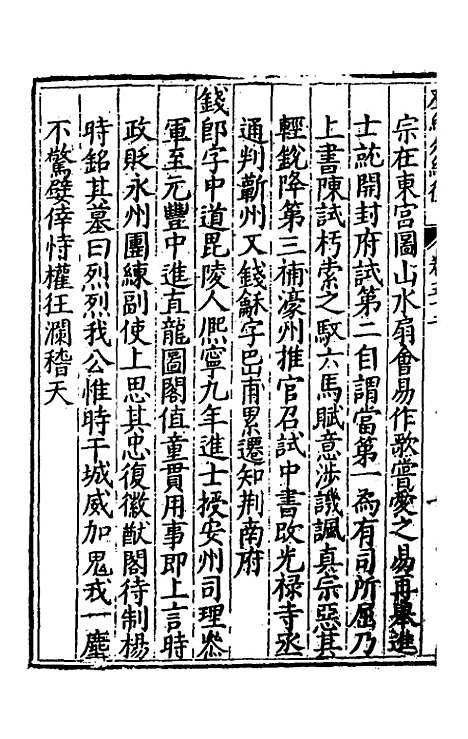 宗在東宫圖山水扇會易作歌嘗愛之易再舉進
士就開封府試第二自謂當第一為有司所屈乃
上書陳試朽索之馭六馬賦意涉譏諷真宗惡其
輕銳降第三補濠州推官召試中書改光祿寺丞
通判蘄州又錢龢字岊甫累遷知荆南府
錢郎字中道毘陵人熈寧九年進士授安州司理叅
軍至元豐中進直龍圖閣值童貫用事即上言時
政貶永州團練副使上思其忠復徽猷閣待制楊
時銘其墓曰烈烈我公惟時干城威加鬼戎一塵
不驚嬖倖恃權狂瀾稽天